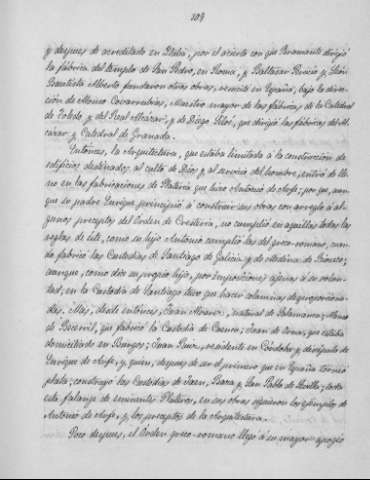 109
y despues de acreditado en Italia, por el acierto con que Bramante dirigió
la fábrica del templo de San Pedro, en Roma, y Baltasar Perucio y León
Bautista Alberto fundaron otras obras, renació en España, bajo la direc-
ción de Alonso Covarrubias, Maestro mayor de las fábricas de la Catedral
de Toledo, y del Real Alcázar; y de Diego Siloé, que dirigió las fábricas del Al-
cázar y Catedral de Granada.
Entónces, la Arquitectura, que estaba limitada á la construcción de
edificios destinados al culto de Dios y al servicio del hombre, entró de lle-
no en las fabricaciones de Platería que hizo Antonio de Arfe; porque, aun-
que su padre Enrique principió á construir sus obras con arreglo á al-
gunos preceptos del Orden de Crestería, no cumplió en aquellas todas las
reglas de éste, como su hijo Antonio cumplió las del greco-romano, cuan-
do fabricó las Custodias de Santiago de Galicia y de Medina de Rioseco;
aunque, como dice su propio hijo, por imposiciones ajenas á su volun-
tad, en la Custodia de Santiago tuvo que hacer columnas desproporciona-
das. Mas, desde entónces, Juan Alvarez, natural de Salamanca; Alonso
de Becerril, que fabricó la Custodia de Cuenca; Juan de Orna, que estaba
domiciliado en Burgos; Juan Ruiz, residente en Córdoba y discípulo de
Enrique de Arfe, y quien, despues de ser el primero que en España torneó
plata, construyó las Custodias de Jaen, Baza y San Pablo de Sevilla; toda
esta falange de eminentes Plateros, en sus obras siguieron los ejemplos de
Antonio de Arfe, y los preceptos de la Arquitectura.
Poco despues, el Orden greco-romano llegó á su mayor apogéo